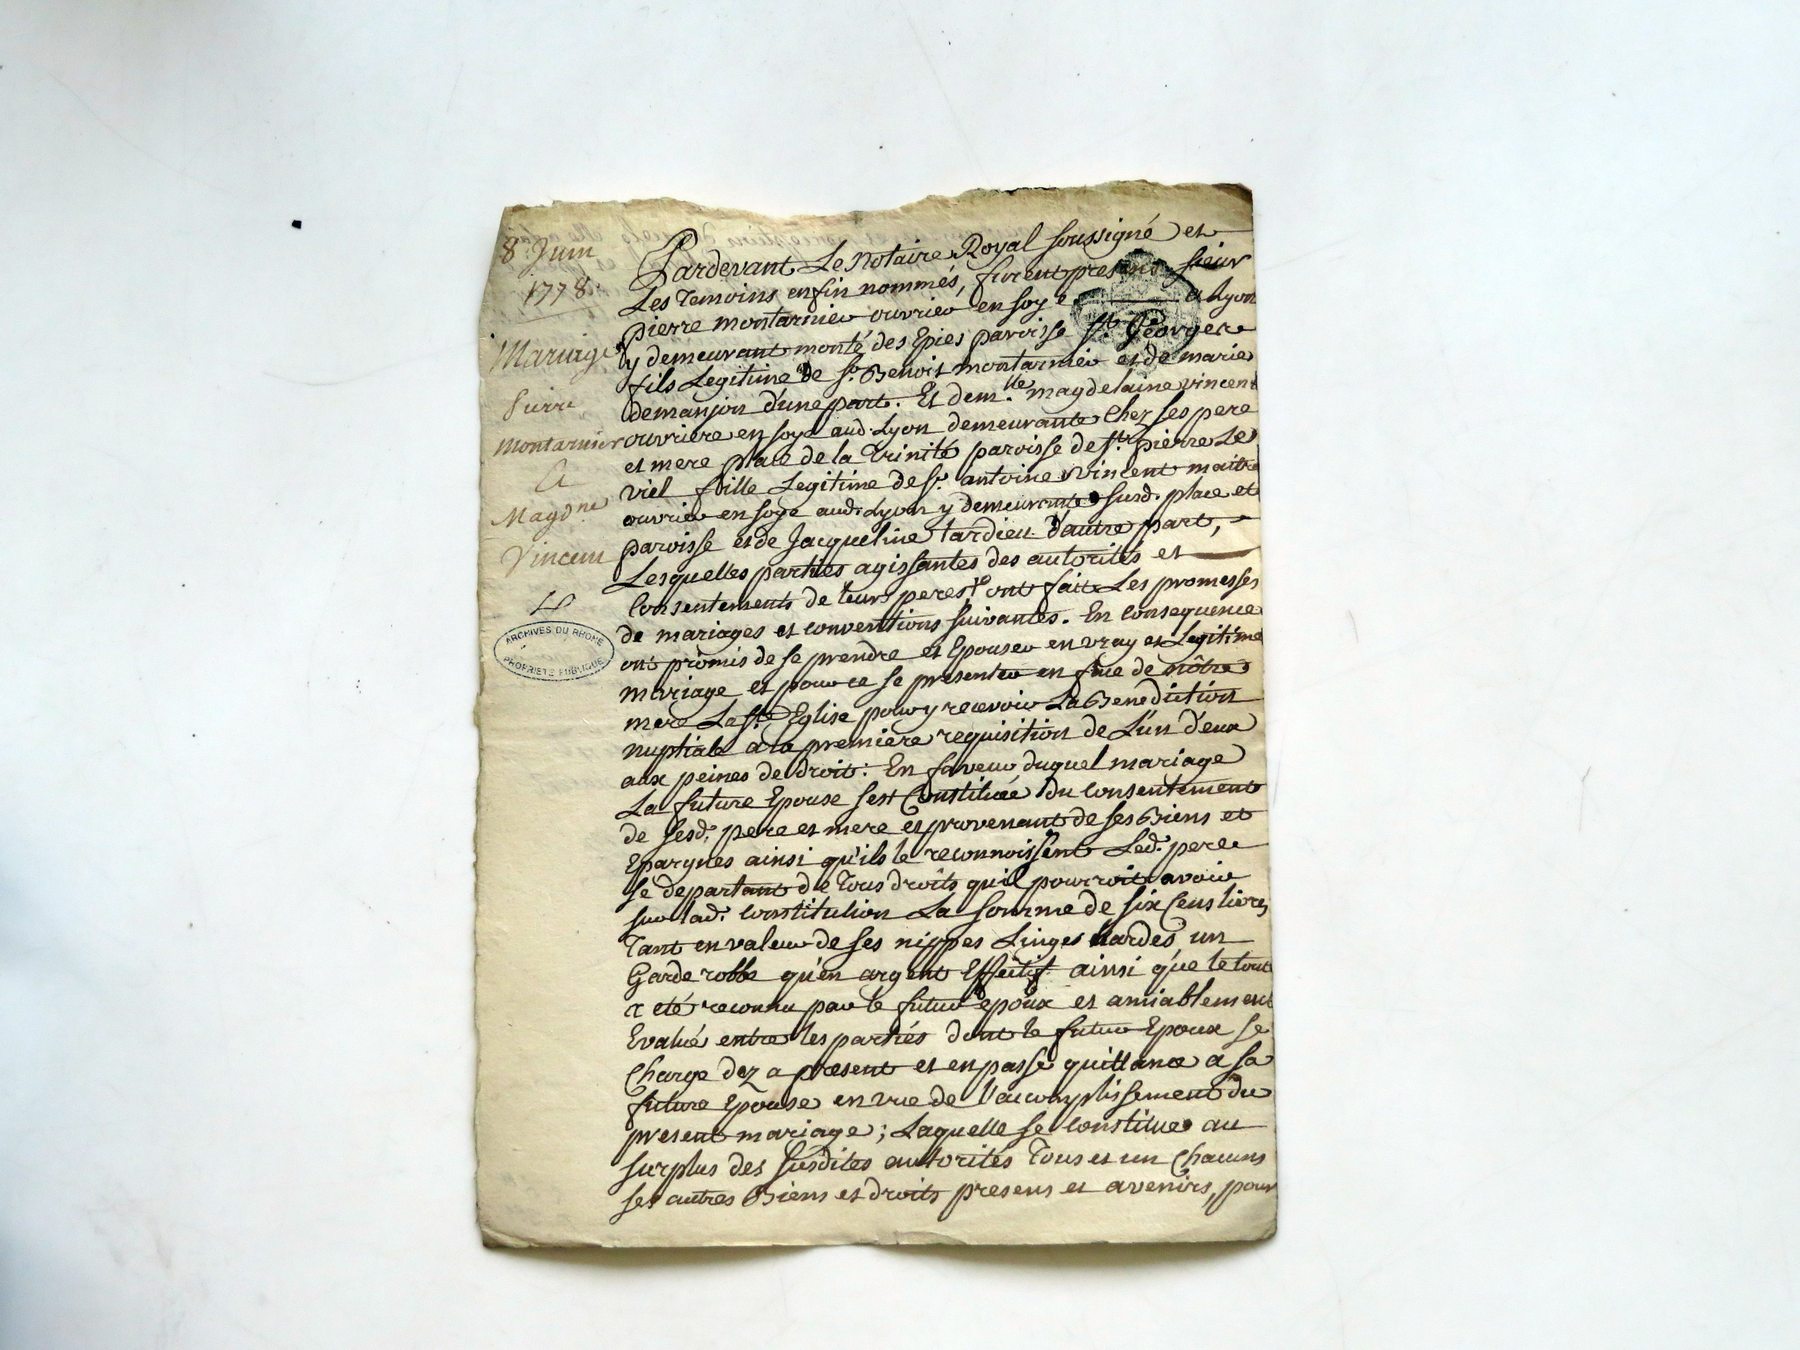 8 Juin
1778
Mariage
Pierre
Montarnier
&
Magdne
Vincent
ARCHIVES DU RHONE
PROPRIETE PUBLIQUE
Pardevant Le Notaire Royal soussigné et
Les Temoins enfin nommés, furent presens sieur
pierre montarnier ouvrier en soye a Lyon
y demeurant monté des Epies paroisse St. George
fils Legitime de Sr. Benoit montarnier et de marie
demanjon d'une part. Et demlle. magdelaine vincent
ouvriere en soye aud. Lyon demeurante chez ses pere
et mere place de la Trinité paroisse de St. pierre Le
viel fille Legitime de Sr. antoine vincent maitre
ouvrier en soye aud. Lyon y demeurant susd. place et
paroisse et de Jacqueline tardieu d'autre part,
Lesquelles parties agissantes des autorités et
Consentements de leurs peres ont fait Les promesses
de mariages et conventions suivantes. En consequence
ont promis de se prendre et Epouser en vray et Legitime
mariage et pour ce se presenter en face de nôtre
mere La Ste. Eglise pour y recevoir La Benediction
nuptiale a la premiere requisition de L'un d'eux
aux peines de droit. En faveur duquel mariage
La future Epouse s'est Constituée du consentement
de sesd. pere et mere et provenant de ses Biens et
Epargnes ainsi qu'ils le reconnoissent Led. pere
se departant de Tous droits qu'il pourroit avoir
sur lad. Constitution La somme de six Cens livres
Tant en valeur de ses nippes Linges hardes un
Garde robbe qu'en argent Effectif ainsi que le tout
a eté reconnu par le futur epoux et amiablement
Evalué entre les parties dont le futur Epoux se
Charge dez a present et en passe quittance a sa
future Epouse en vue de l'accomplissement du
present mariage; Laquelle se Constitue au
surplus des susdites autorités Tous et un Chacuns
ses autres Biens et droits presens et avenirs, pour